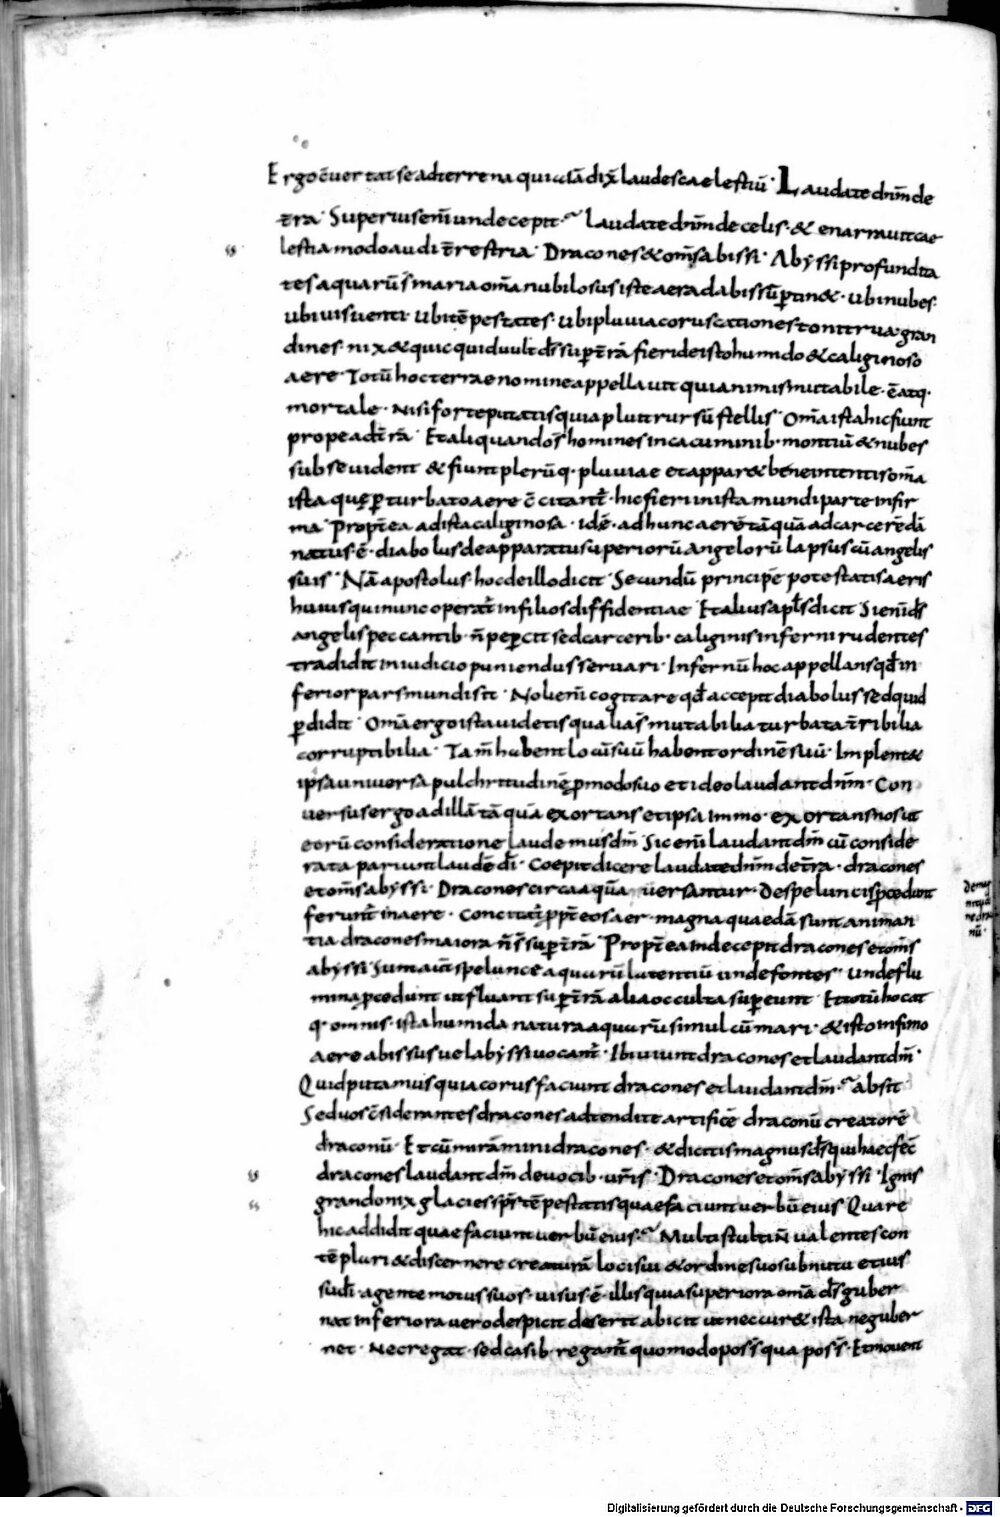 Ergo c̄uertat se ad terrena quia iā dix̄ laudes caelestiū · Laudate dn̄m de
t̄ra · Superius eni̅ unde cepit · laudate dn̄m de celis · & enarrauit cae
lestia modo audi t̄restria · Dracones & om̄s abissi · Abyssi profundita
tes aquarū s̄ maria om̄a nubilosus iste aer ad abissū ptin& · ubi nubes ·
ubi uis uenti · ubi tēpestates · ubi pluuia coruscationes tonitrua gran
dines · nix & quicquid uult ds̄ sup t̄rā fieri de isto humido & caliginoso
aere · Totū hoc terrae nomine appellauit quia nimis mutabile · ē atq·
mortale · Nisi forte putatis quia pluit rursū stellis · Om̄a ista hic fiunt
prope ad t̄rā · Et aliquando s̄ homines in cacuminib· montiū & nubes
sub se uident & fiunt plerūq· pluuiae et appar& bene intentis om̄a
ista quę pturbato aere c̄citant̄ · hic fieri in ista mundi parte infir
ma · Propt̄ea ad ista caliginosa · idē · ad hunc aerē tāquā ad carcerē dā
natus · ē · diabolus de apparatu superiorū angelorū lapsus cū angelis
suis · Nā apostolus · hoc de illo dicit · Secundū principē potestatis aeris
huius qui nunc operat̄ in filios diffidentiae · Et alius apl̄s dicit · Si eni̅ ds̄
angelis peccantib· n̄ pepcit sed carcerib· caliginis inferni rudentes
tradidit in iudicio puniendus seruari · Infernū hoc appellans qd̄ in
ferior pars mundi sit · Nol uen̄i cogitare qd̄ accepit diabolus sed quid
pdidit · Om̄a ergo ista uidetis qualia s̄ mutabilia turbata t̄ribilia
corruptibilia · Tam̄ habent locū suū habent ordinē suū · Implent &
ipsa uniuersa pulchritudinē p modo suo et ideo laudant dn̄m · Con
uersus ergo ad illā tāquā exortans et ipsa Immo · exortans nos ut
eorū consideratione laudemus dn̄m · Sic eni̅ laudant dn̄m cū conside
rata pariunt laudē dī · Coepit dicere laudate dn̄m de t̄ra · dracones
et om̄s abyssi · Dracones circa aquā uersantur · de speluncis pcedunt
ferunt̄ in aere · Concitat̄ ppt̄ eos aer · magna quaedā sunt animan
tia dracones maiora n̄ s̄ sup t̄rā · Propt̄ea inde cepit dracones et om̄s
abyssi
demus
speluncę aquarū latentiū unde fontes · unde flu
mina pcedunt ut fluant sup t̄rā alia occulta sup eunt · Et totū hoc at
q· omnis · ista humida natura aquarū simul cū mari · & isto infimo
aere abissus uel abyssi uocant̄ · Ibi uiuunt dracones et laudant dn̄m ·
Quid putamus quia corus faciunt dracones et laudant dn̄m · absit ·
Sed uos c̄siderantes dracones adtendite artificē draconū creatorē
draconū · Et cū miramini dracones · & dicitis magnus ds̄ qui haec fec̄
dracones laudant dn̄m de uocib· uris · Dracones et om̄s abyssi · Ignis
grando nix glacies sps̄ tēpestatis quae faciunt uerbū eius · Quare
hic addidit quae faciunt uerbū eius · Multi stulti n̄ ualentes con
tēplari & discernere creaturā locis sui & ordine suo sub nutu et ius
su dī · agente motus suos · uisus · ē · illis quia superiora om̄a ds̄ guber
nat inferiora uero despicit deserit abicit ut nec cur& ista ne guber
net · Nec regat · sed casib· regant̄ quomodo poss̄ qua poss̄ · Et mouent